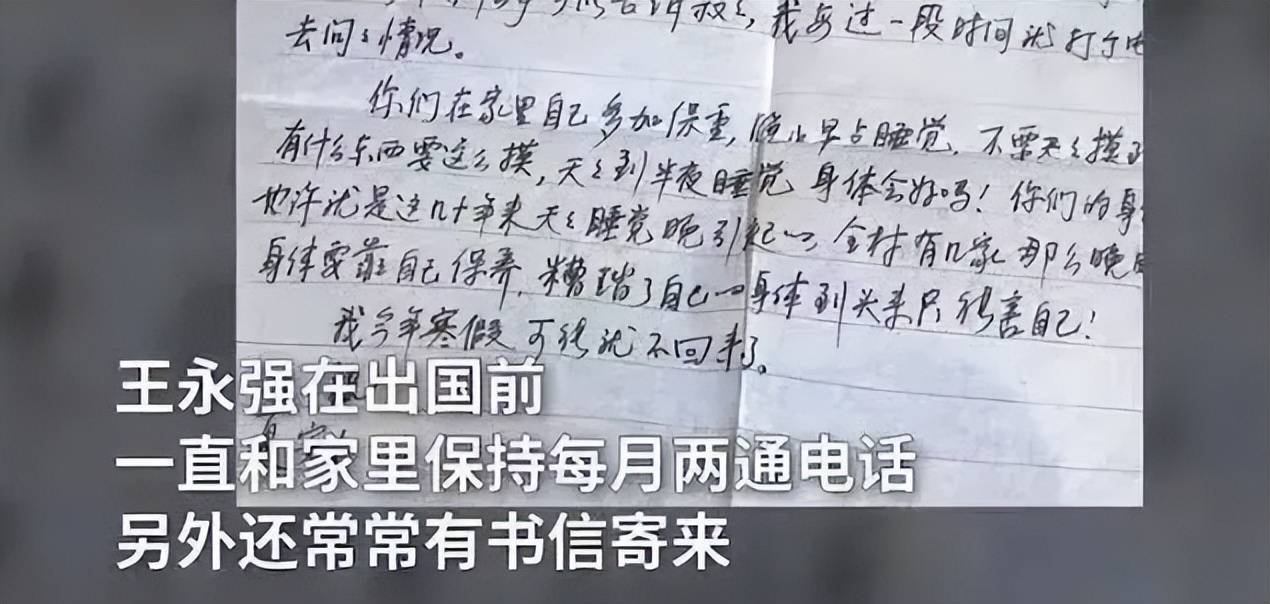 我每过一段时间就打个电
去问々情况。
你们在家里自己多加保重，晚上早点睡觉，不要天々摸到
有什么东西要这么摸，天々到半夜睡觉 身体会好吗！你们的身
也许就是这几十年来天々睡觉晚引起的，全村有几家那么晚
身体要靠自己保养，糟蹋了自己的身体到头来只能害自己！
我今年寒假可能就不回来了。
王永强在出国前
一直和家里保持每月两通电话
另外还常常有书信寄来